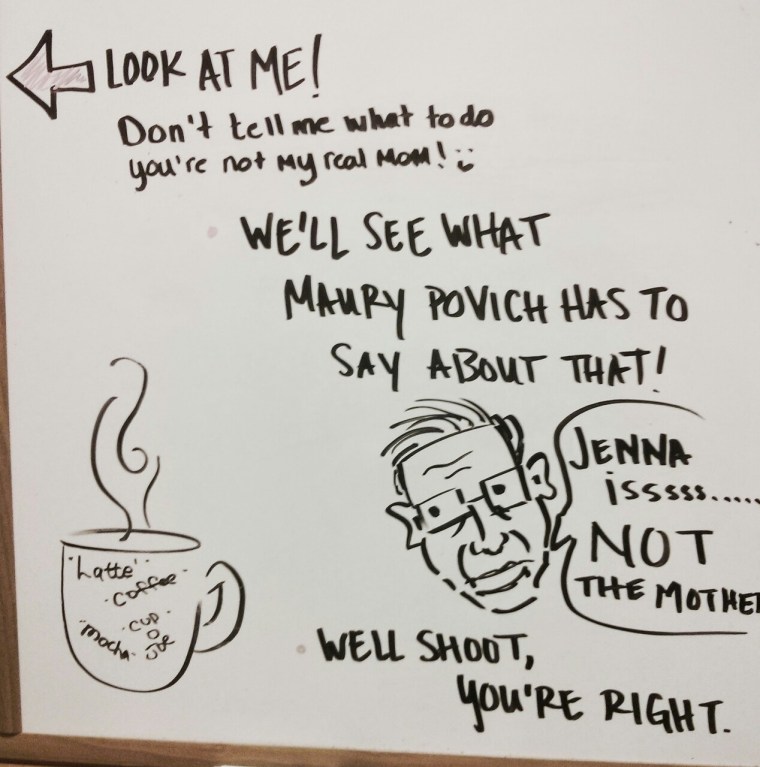 LOOK AT ME!
Don't tell me what to do
you're not my real mom!
WE'LL SEE WHAT
MAURY POVICH HAS TO
SAY ABOUT THAT!
JENNA
isssss.....
NOT
THE MOTHER
"Latte"
coffee
cup
o
Joe
mocha
WELL SHOOT,
YOU'RE RIGHT.